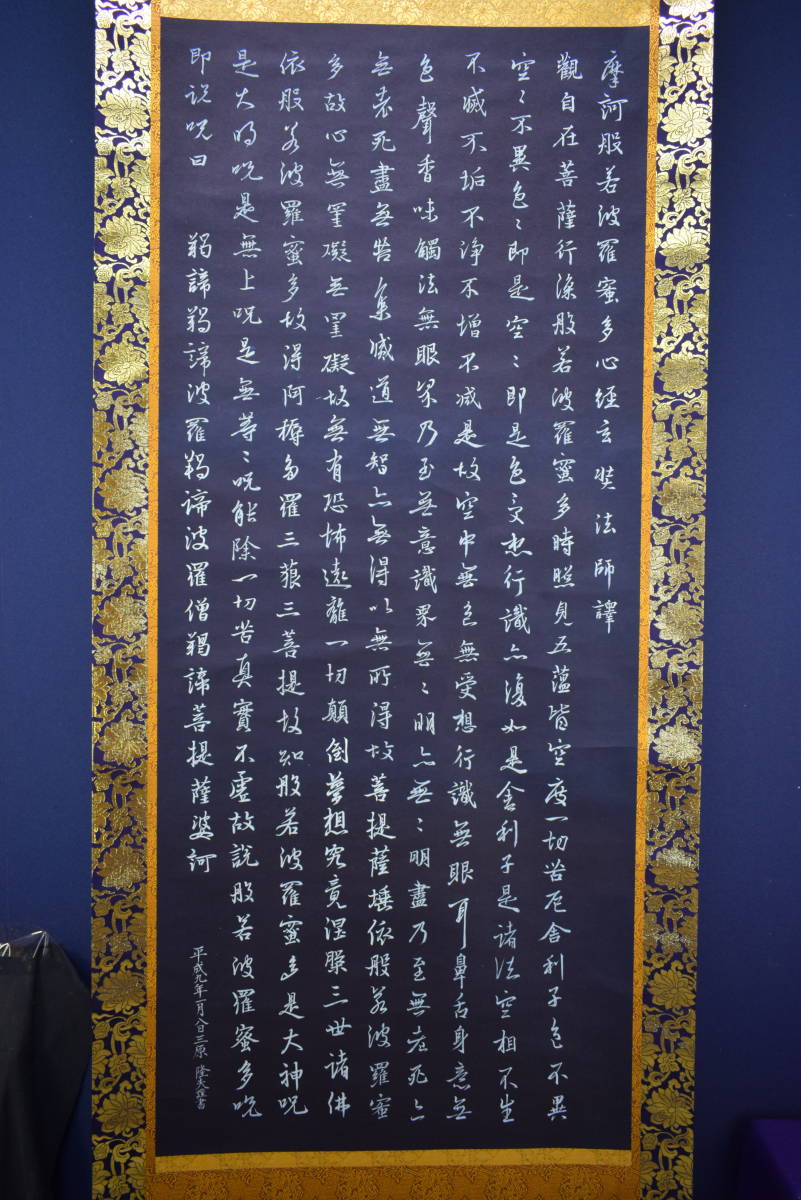 摩訶般若波羅蜜多心經玄奘法師譯
觀自在菩薩行深般若波羅蜜多時照見五蘊皆空度一切苦厄舍利子色不異
空〻不異色〻即是空〻即是色受想行識亦復如是舍利子是諸法空相不生
不滅不垢不淨不增不減是故空中無色無受想行識無眼耳鼻舌身意無
色聲香味觸法無眼界乃至無意識界無〻明亦無〻明盡乃至無老死亦
無老死盡無苦集滅道無智亦無得以無所得故菩提薩埵依般若波羅蜜
多故心無罣礙無罣礙故無有恐怖遠離一切顛倒夢想究竟涅槃三世諸佛
依般若波羅蜜多故得阿耨多羅三藐三菩提故知般若波羅蜜多是大神呪
是大明呪是無上呪是無等〻呪能除一切苦真實不虛故說般若波羅蜜多呪
即說呪曰 羯諦羯諦波羅羯諦波羅僧羯諦菩提薩婆訶
平成九年一月八日三原 隆夫謹書